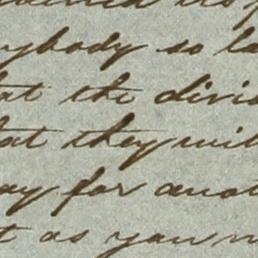 ybody so la
at the divis
hat they will
ay for anot
t as you